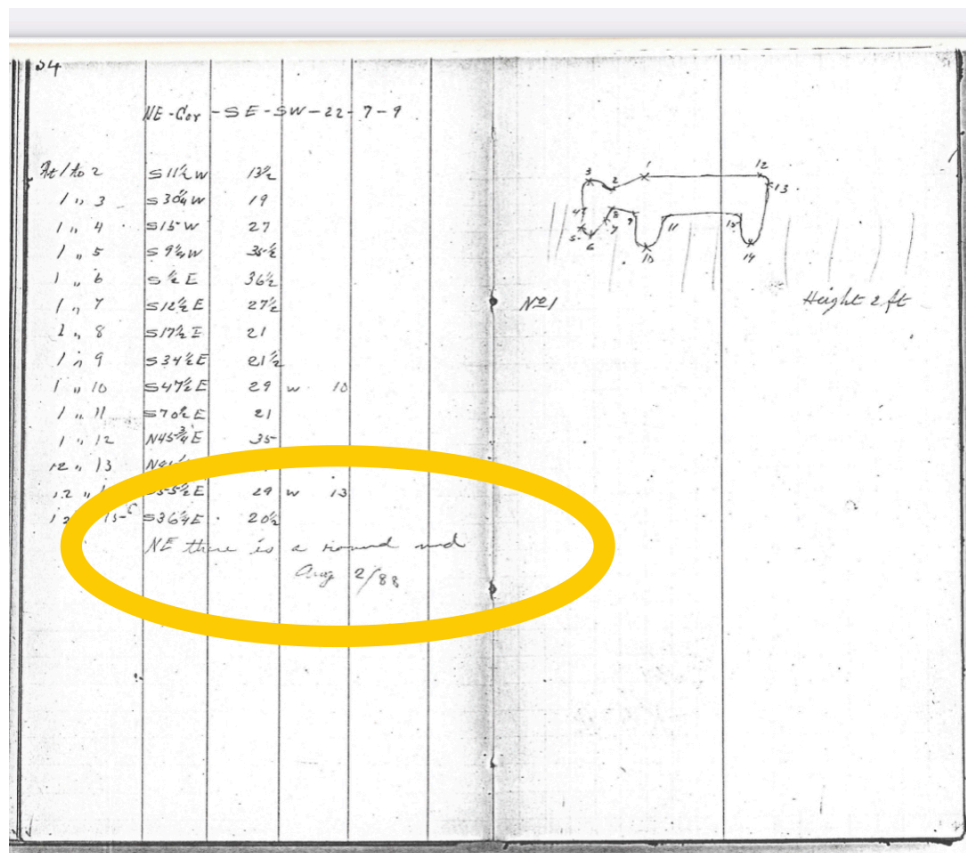 54
NE-Cor-SE-SW-22-7-9
At 1 to 2 S 11½ W 13½
1 " 3 S 30¼ W 19
1 " 4 S 15 W 27
1 " 5 S 9¼ W 35½
1 " 6 S ½ E 36½
1 " 7 S 12½ E 27½
1 " 8 S 17½ E 21
1 " 9 S 34½ E 21½
1 " 10 S 47½ E 29 W 10
1 " 11 S 70½ E 21
1 " 12 N 45¾ E 35
12 " 13
12 " S 55½ E 29 W 13
15 S 36¼ E 20½
NE there is a round
Aug 2/88
3 2 1 12
13
4 8 9 11 15
5 7
6 10 14
No 1
Height 2 ft